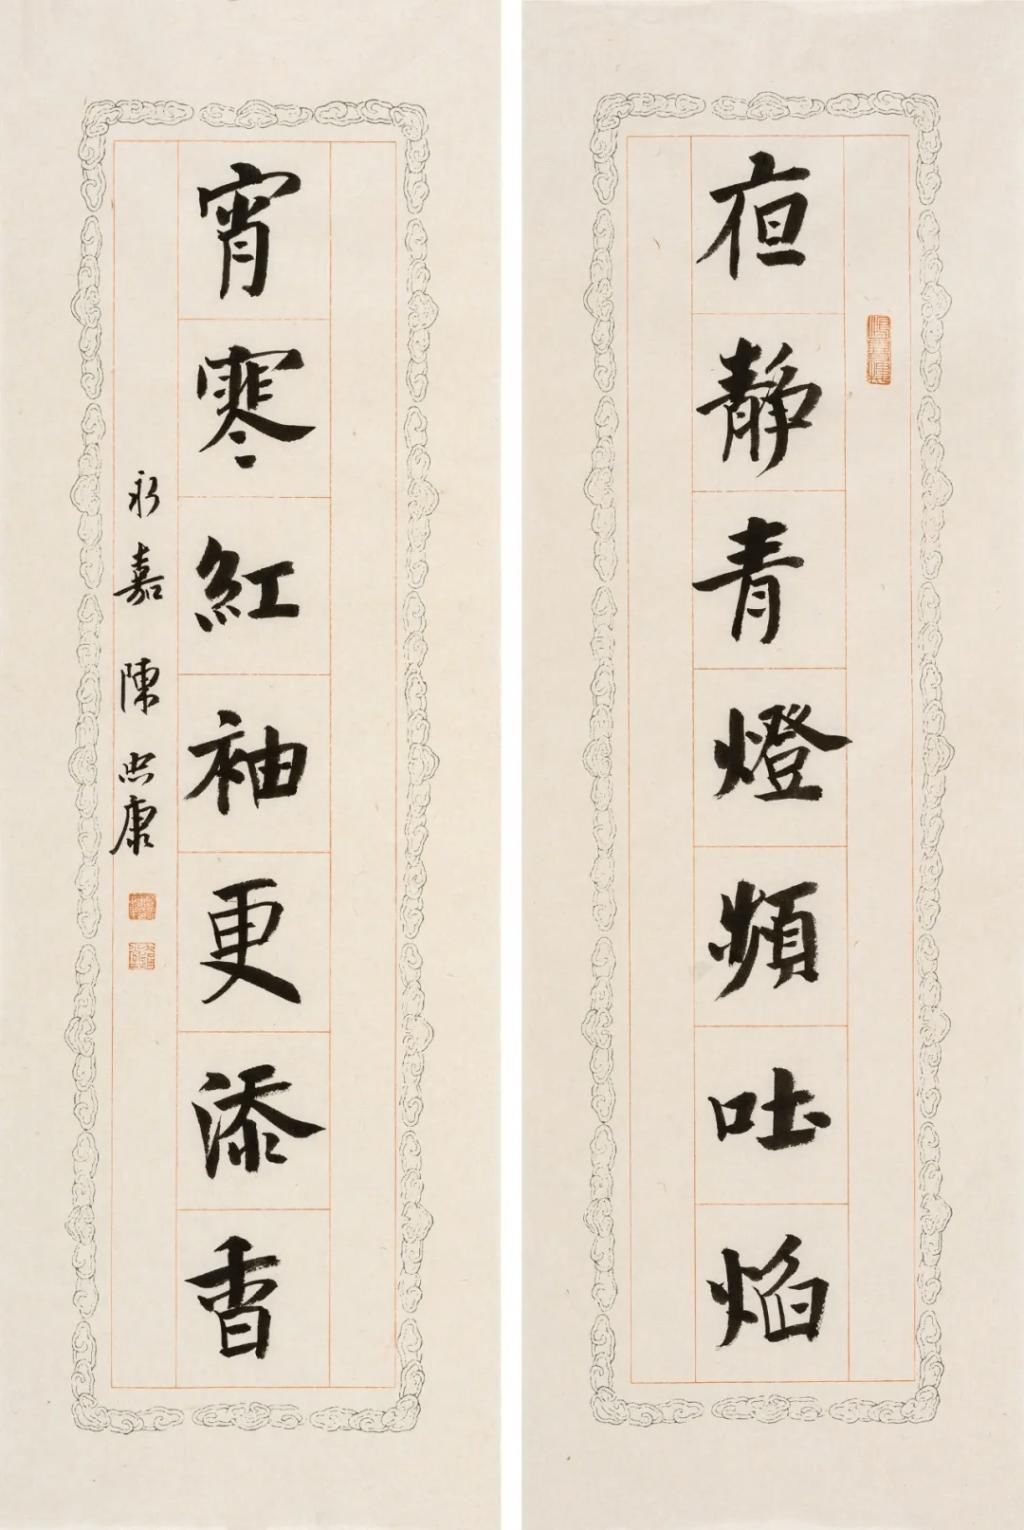 亱静青燈頻吐焰
宵寒紅袖更添香
永嘉陳忠康